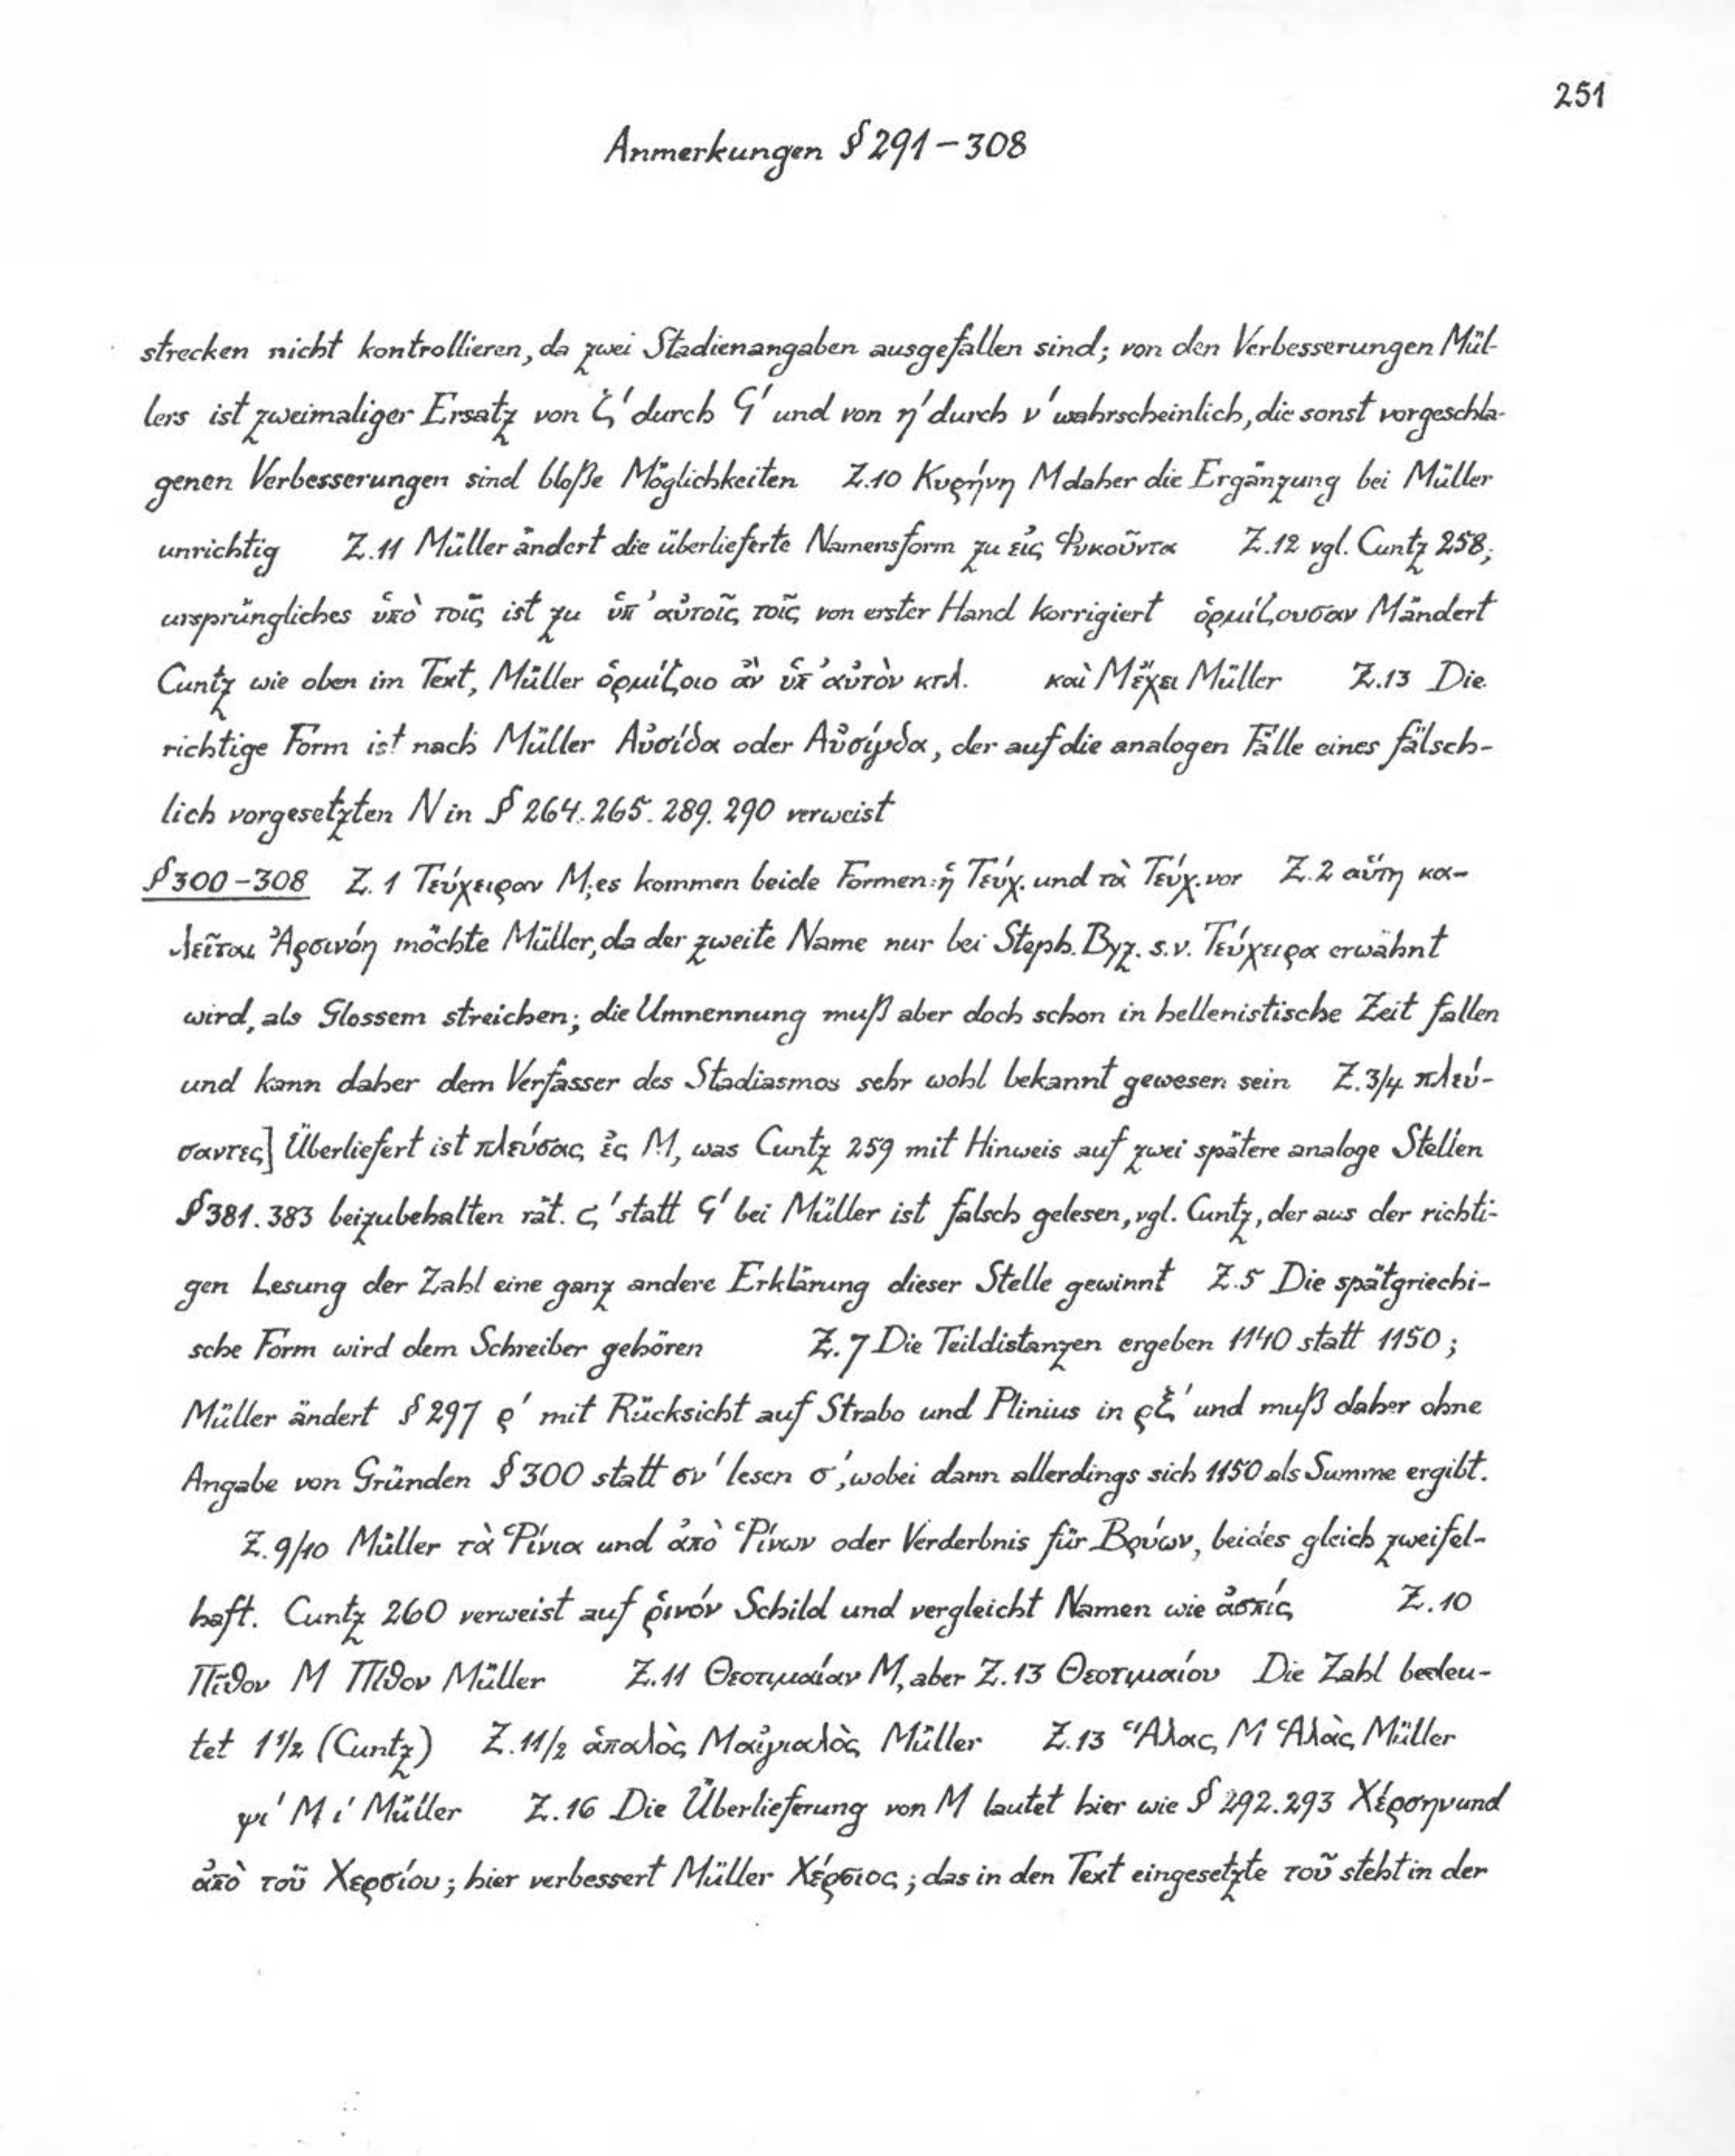 251
Anmerkungen § 291–308
strecken nicht kontrollieren, da zwei Stadienangaben ausgefallen sind; von den Verbesserungen Mül-
lers ist zweimaliger Ersatz von ζ' durch Ϟ' und von η' durch ν' wahrscheinlich, die sonst vorgeschla-
genen Verbesserungen sind bloße Möglichkeiten Z.10 Κυρήνη M daher die Ergänzung bei Müller
unrichtig Z.11 Müller ändert die überlieferte Namensform zu εἰς Φυκοῦντα Z.12 vgl. Cuntz 258;
ursprüngliches ὑπὸ τοῖς ist zu ὑπ' αὐτοῖς τοῖς von erster Hand korrigiert ὁρμίζουσαν M ändert
Cuntz wie oben im Text, Müller ὁρμίζοιο ἂν ὑπ' αὐτὸν κτλ. καὶ Μέχει Müller Z.13 Die
richtige Form ist nach Müller Αὐσίδα oder Αὐσίγδα, der auf die analogen Fälle eines fälsch-
lich vorgesetzten N in § 264. 265. 289. 290 verweist
§ 300–308 Z. 1 Τεύχειρον M; es kommen beide Formen: ἡ Τεύχ. und τὰ Τεύχ. vor Z. 2 αὕτη κα-
λεῖται Ἀρσινόη möchte Müller, da der zweite Name nur bei Steph. Byz. s.v. Τεύχειρα erwähnt
wird, als Glossem streichen; die Umnennung muß aber doch schon in hellenistische Zeit fallen
und kann daher dem Verfasser des Stadiasmos sehr wohl bekannt gewesen sein Z. 3/4 πλεύ-
σαντες] Überliefert ist πλεύσας ἐς M, was Cuntz 259 mit Hinweis auf zwei spätere analoge Stellen
§ 381. 383 beizubehalten rät. ς' statt Ϟ' bei Müller ist falsch gelesen, vgl. Cuntz, der aus der richti-
gen Lesung der Zahl eine ganz andere Erklärung dieser Stelle gewinnt Z.5 Die spätgriechi-
sche Form wird dem Schreiber gehören Z. 7 Die Teildistanzen ergeben 1140 statt 1150;
Müller ändert § 297 ρ' mit Rücksicht auf Strabo und Plinius in ρξ' und muß daher ohne
Angabe von Gründen § 300 statt σν' lesen σ', wobei dann allerdings sich 1150 als Summe ergibt.
Z. 9/10 Müller τὰ Ῥίνια und ἀπὸ Ῥίνων oder Verderbnis für Βρύων, beides gleich zweifel-
haft. Cuntz 260 verweist auf ῥινόν Schild und vergleicht Namen wie ἀσπίς Z.10
Πῖθον M Πίθον Müller Z.11 Θεοτιμαίαν M, aber Z.13 Θεοτιμαίου Die Zahl bedeu-
tet 1 1/2 (Cuntz) Z.11/2 ἁπαλὸς Μαἰγιαλὸς Müller Z.13 Ἅλας M Ἁλὰς Müller
ψι' M ι' Müller Z.16 Die Überlieferung von M lautet hier wie § 292. 293 Χέρσην und
ἀπὸ τοῦ Χερσίου; hier verbessert Müller Χέρσιος; das in den Text eingesetzte τοῦ steht in der